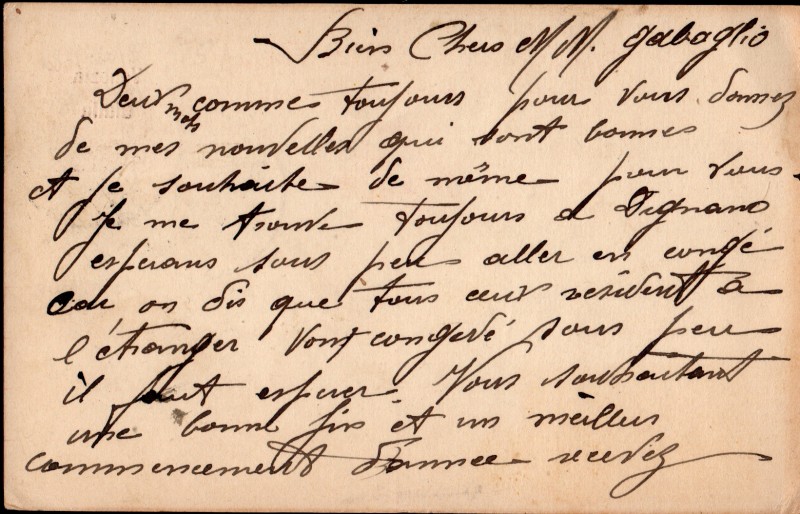 Bien Chers M M. Gabaglio
Deux mots comme toujours pour vous donnez
de mes nouvelles qui sont bonnes
et je souhaite de même pour vous
Je me trouve toujours a Dignano
esperans sous peu aller en congé
car on dis que tous ceux résident a
l'étranger vont congedé sous peu
il faut esperer. Vous souhaitant
une bonne fin et un meilleur
commencement d'annee recevez